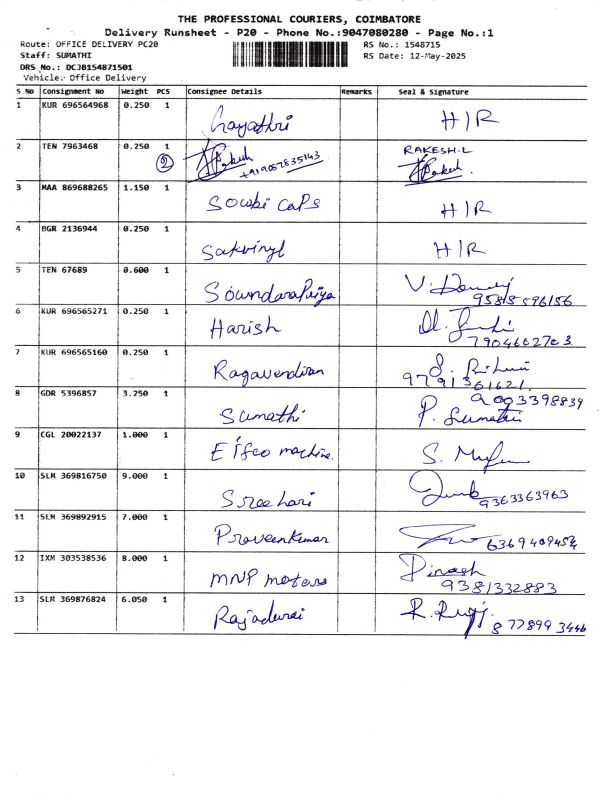 THE PROFESSIONAL COURIERS, COIMBATORE
Delivery Runsheet - P20 - Phone No.:9047080280 - Page No.:1
Route: OFFICE DELIVERY PC20 RS No.: 1548715
Staff: SUMATHI RS Date: 12-May-2025
DRS No.: DCJB154871501
Vehicle: Office Delivery
S No Consignment No Weight PCS Consignee Details Remarks Seal & Signature
1 KUR 696564968 0.250 1 Gayathri H/R
2 TEN 7963468 0.250 1 Rakesh RAKESH.L
2 +919087835143 Rakesh
3 MAA 869688265 1.150 1 Sowbi caps H/R
4 BGR 2136944 0.250 1 Sakvinyl H/R
5 TEN 67689 0.600 1 SoundaraPriya
6 KUR 696565271 0.250 1 Harish
7904662703
7 KUR 696565160 0.250 1 Ragavendiran
9791361621
8 GDR 5396857 3.250 1 Sumathi 9003398839
P. Sumathi
9 CGL 20022137 1.000 1 machine.
10 SLM 369816750 9.000 1 Sreehari
9363363963
11 SLM 369892915 7.000 1 Praveenkumar
6369409454
12 IXM 303538536 8.000 1 MNP motors Dinash
9381332883
13 SLM 369876824 6.050 1 Rajadurai
8778993446